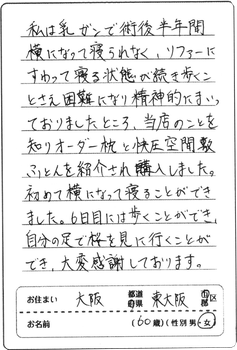 私は乳ガンで術後半年間
横になって寝られなく、ソファーに
すわって寝る状態が続き歩くこ
とさえ困難になり精神的にまいっ
ておりましたところ、当店のことを
知りオーダー枕と快圧空間敷
ふとんを紹介され購入しました。
初めて横になって寝ることができ
ました。6日目には歩くことができ、
自分の足で桜を見に行くことが
でき、大変感謝しております。
お住まい 大阪 都道府県 東大阪 市区郡
お名前 (60歳)(性別 男・女)